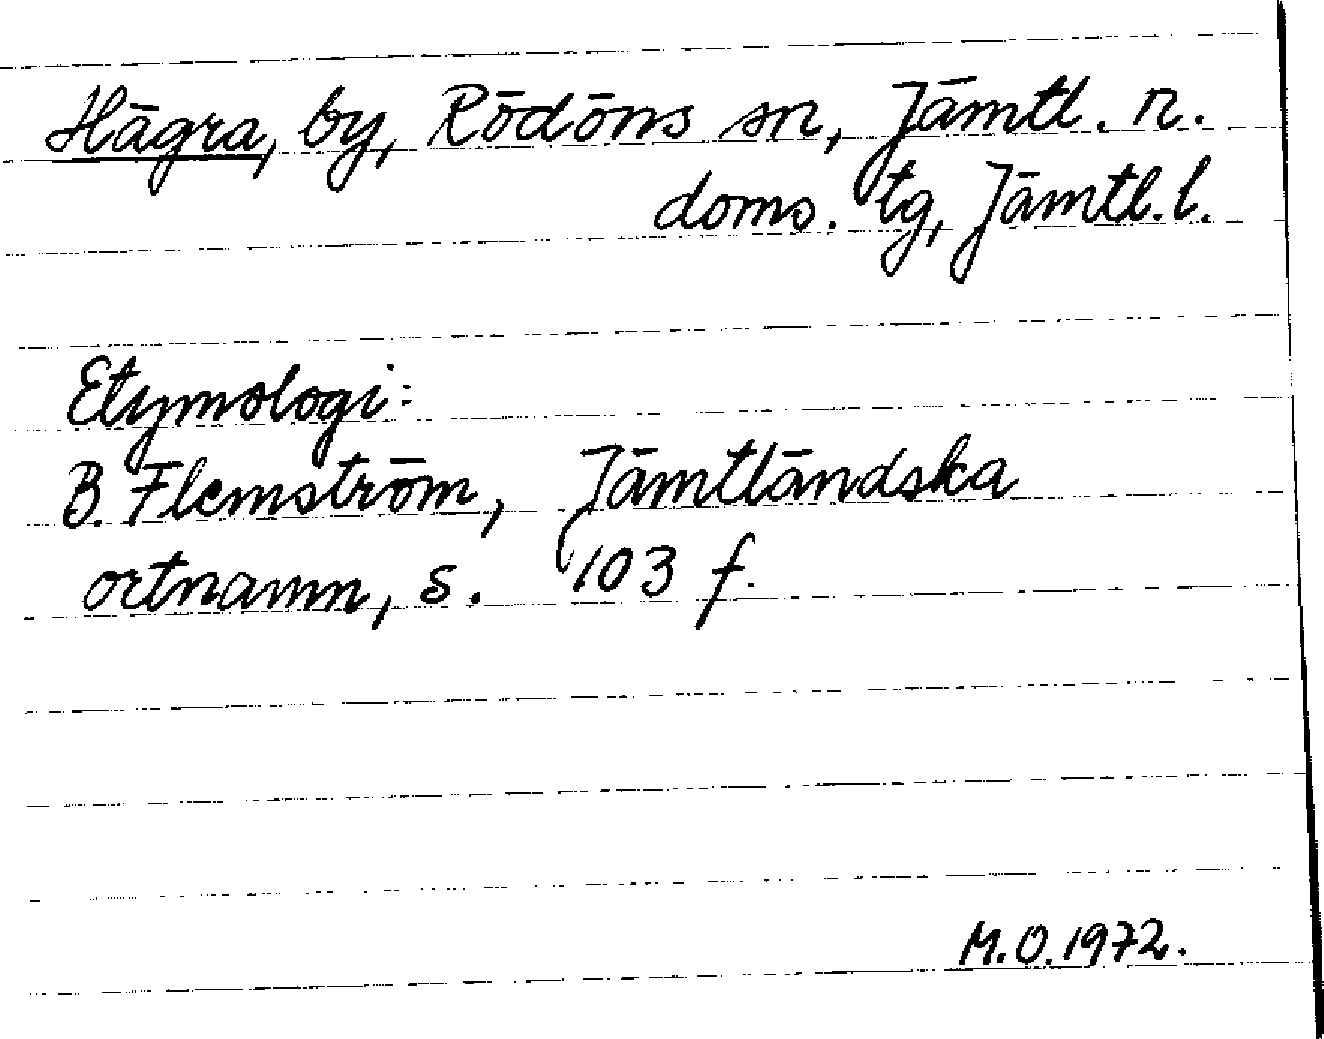 Hägra, by, Rödöns sn, Jämtl. n.
doms. tg, Jämtl. l.
Etymologi:
B. Flemström, Jämtländska
ortnamn, s. 103 f.
M.O. 1972.